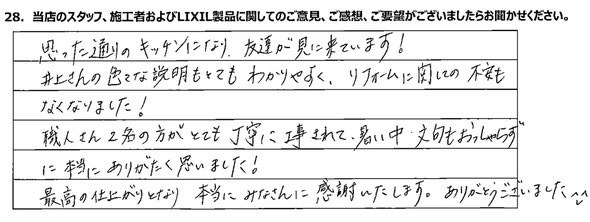 28. 当店のスタッフ、施工者およびLIXIL製品に関してのご意見、ご感想、ご要望がございましたらお聞かせください。
思った通りのキッチンになり、友達が見に来ています！
井上さんの色々な説明もとてもわかりやすく、リフォームに関しての不安も
なくなりました！
職人さん2名の方がとても丁寧に工事されて、暑い中、文句もおっしゃらず
に本当にありがたく思いました！
最高の仕上がりとなり本当にみなさんに感謝いたします。ありがとうございました^^